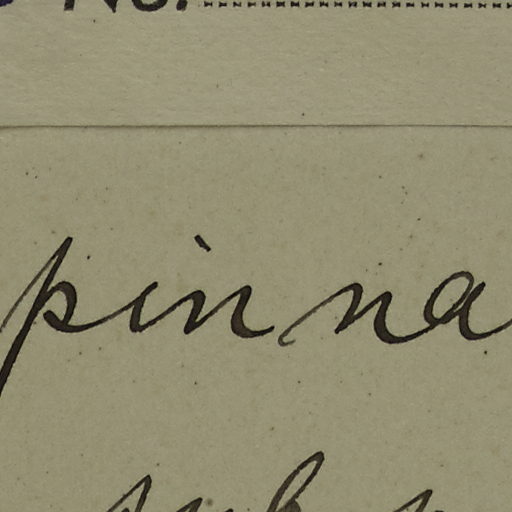 No.
pinna